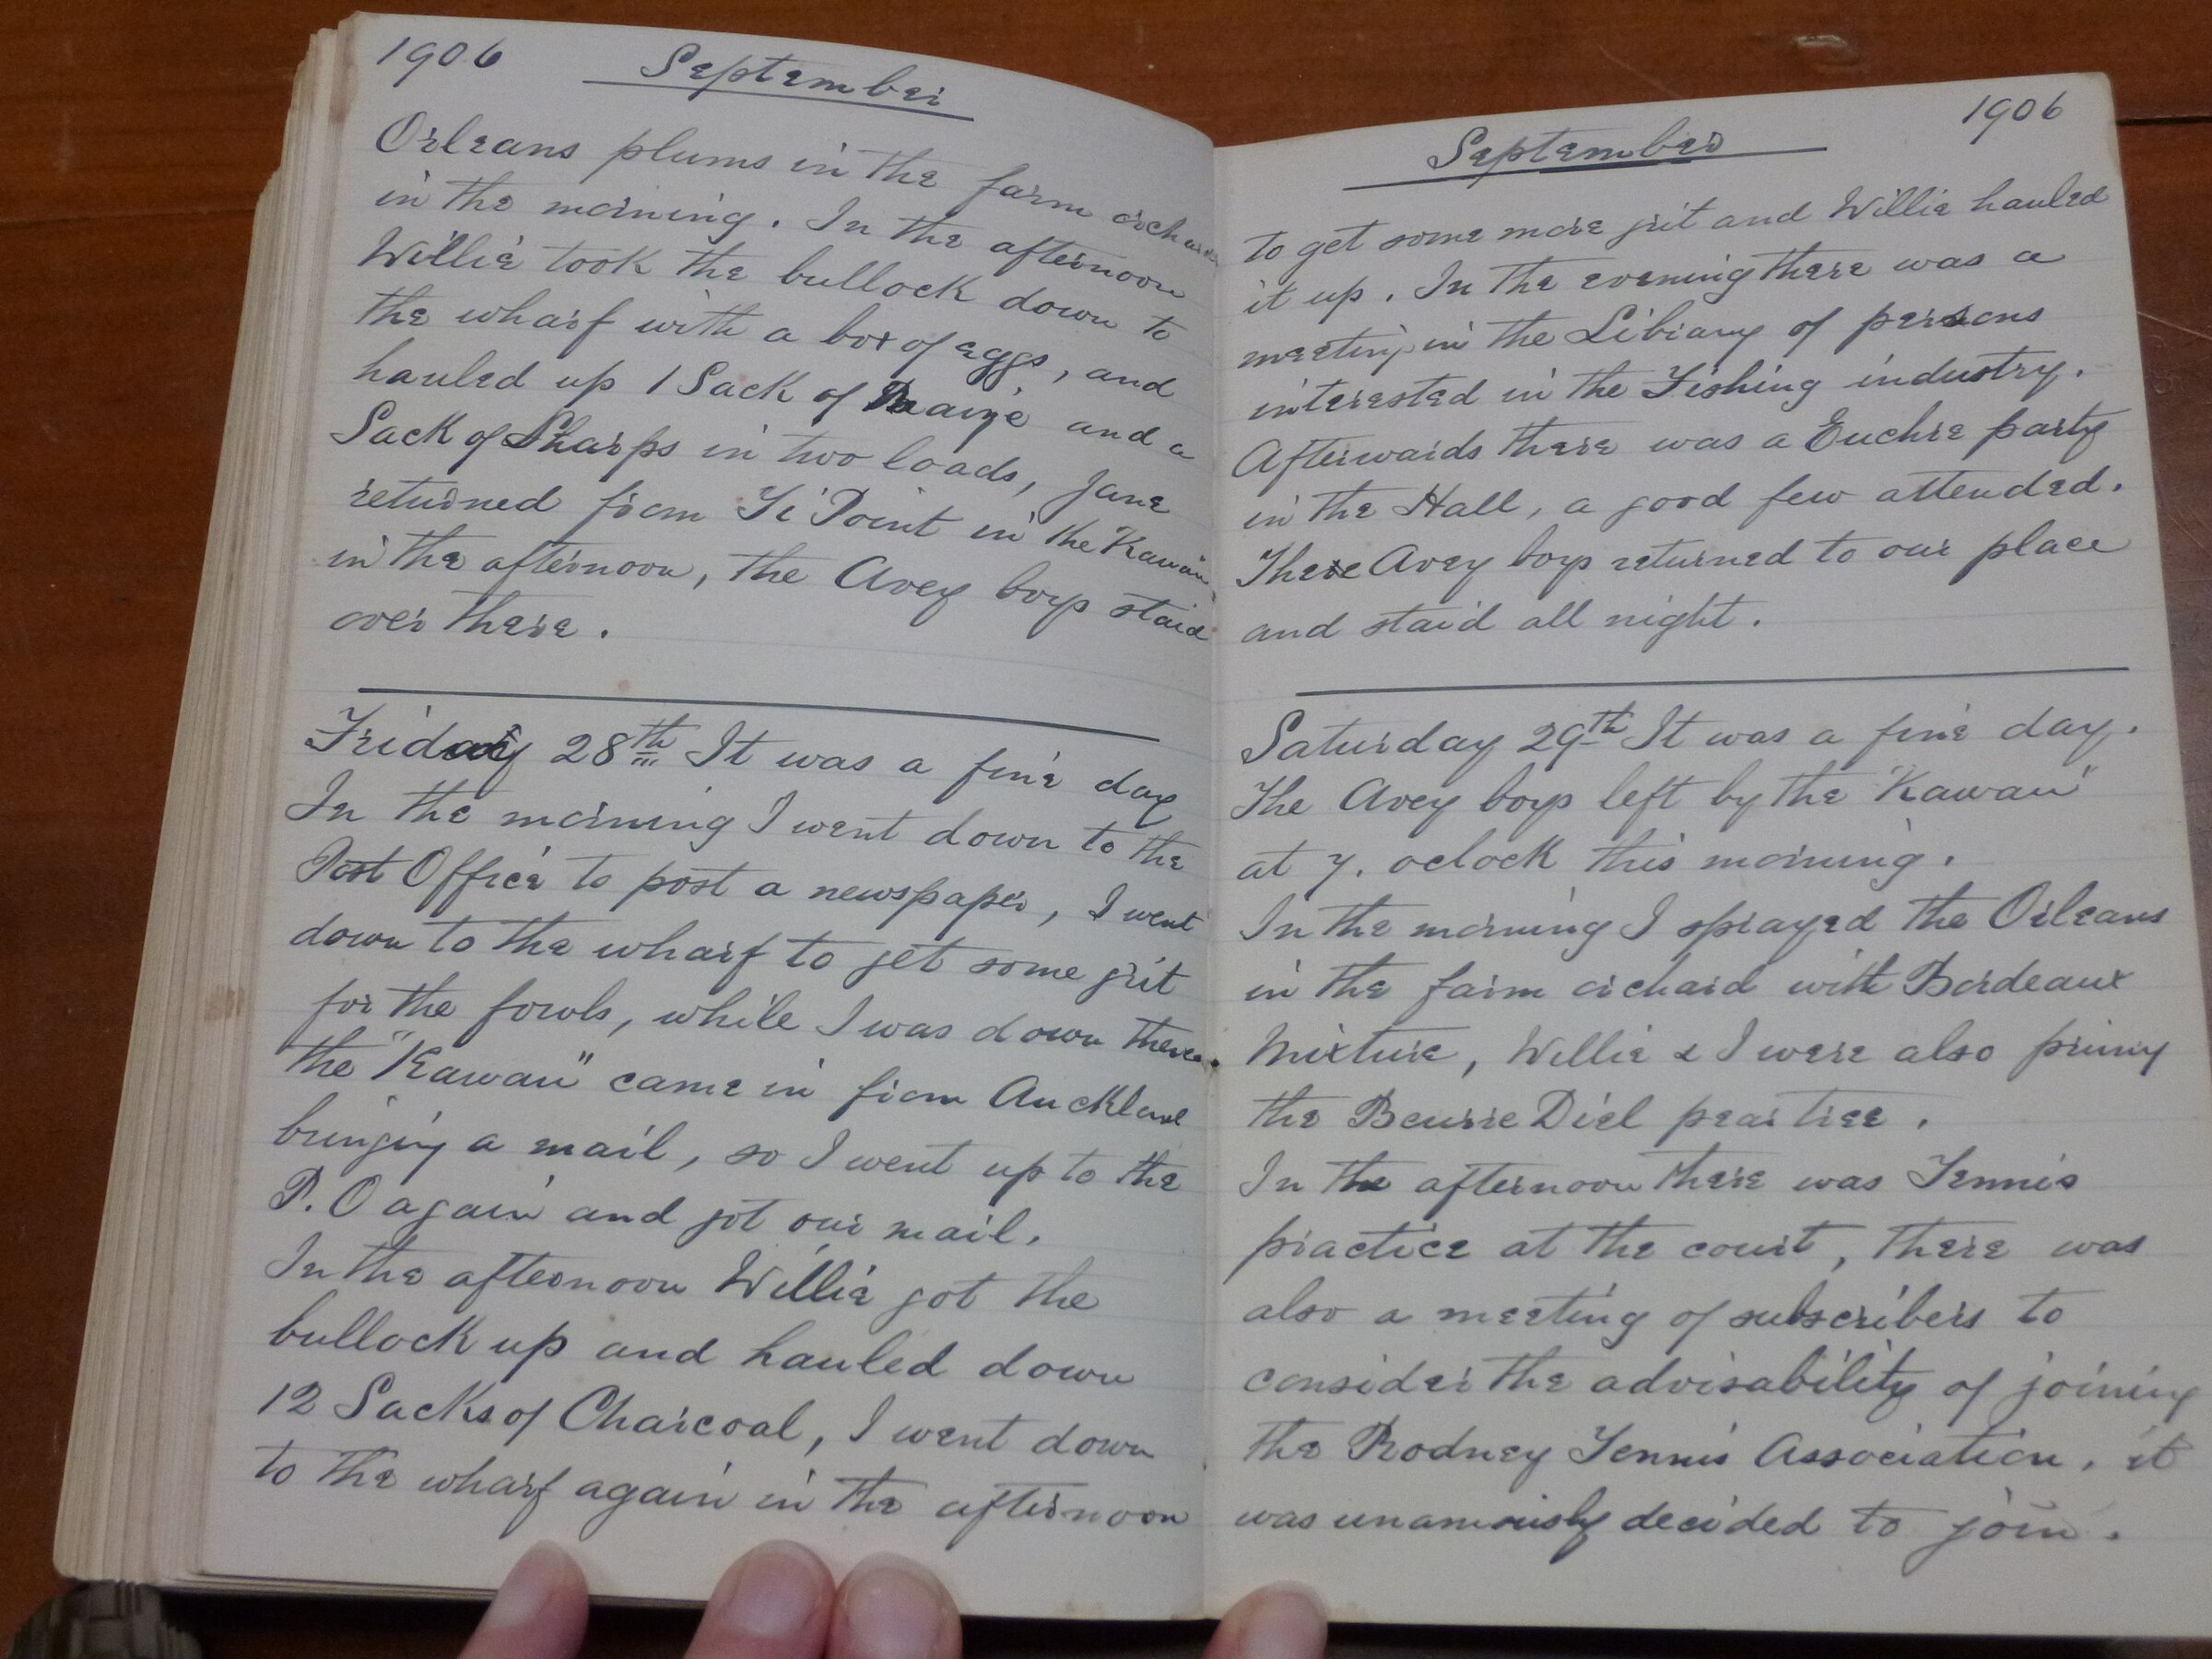 1906 September
Orleans plums in the farm orchard
in the morning. In the afternoon
Willie took the bullock down to
the wharf with a box of eggs, and
hauled up 1 Sack of Maize and a
Sack of Sharps in two loads, Jane
returned from Ti Point in the Kawau
in the afternoon, the Avey boys staid
over there.
Friday 28th It was a fine day
In the morning I went down to the
Post Office to post a newspaper, I went
down to the wharf to get some grit
for the fowls, while I was down there
the "Kawau" came in from Auckland
bringing a mail, so I went up to the
P.O again and got our mail.
In the afternoon Willie got the
bullock up and hauled down
12 Sacks of Charcoal, I went down
to the wharf again in the afternoon
September 1906
to get some more grit and Willie hauled
it up. In the evening there was a
meeting in the Library of persons
interested in the Fishing industry.
Afterwards there was a Euchre party
in the Hall, a good few attended.
There Avey boys returned to our place
and staid all night.
Saturday 29th It was a fine day.
The Avey boys left by the "Kawau"
at 7. oclock this morning.
In the morning I sprayed the Orleans
in the farm orchard with Bordeaux
Mixture, Willie & I were also pruning
the Beurre Diel pear tree.
In the afternoon there was Tennis
practice at the court, there was
also a meeting of subscribers to
consider the advisability of joining
the Rodney Tennis Association, it
was unamiously decided to join.